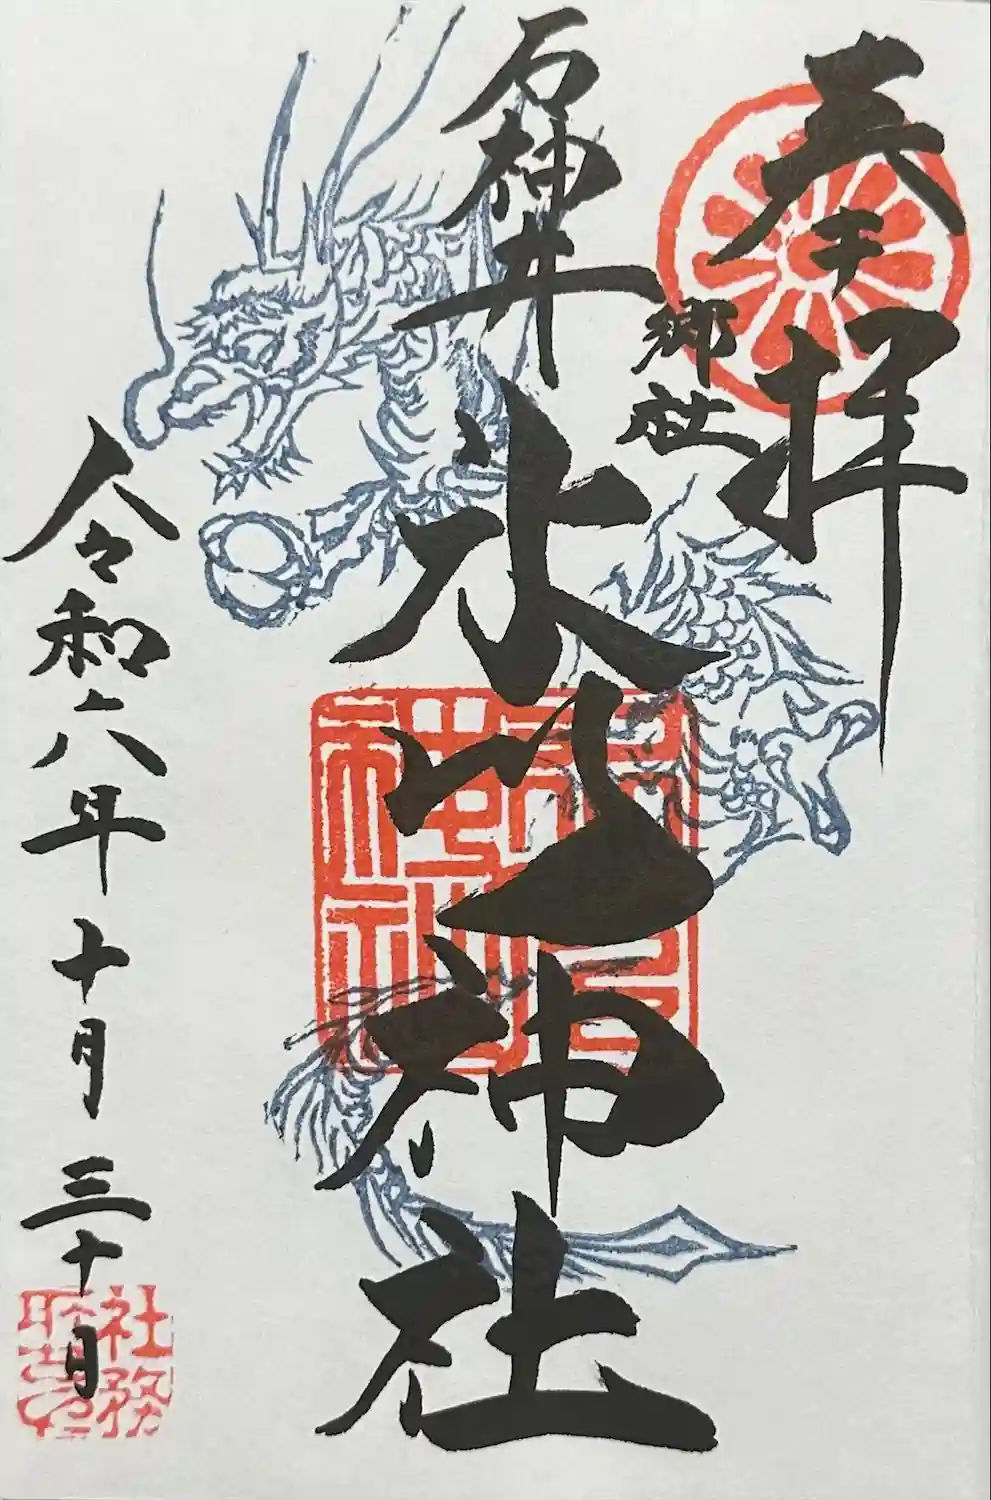 奉拝
郷社
石神井
氷川神社
令和六年十月三十日
社務